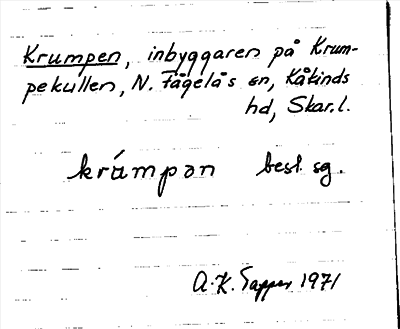 Krumpen, inbyggaren på Krum-
pekullen, N. Fågelås sn, Kåkinds
hd, Skar.l.
krúmpən best. sg.
A.K. Tapper 1971